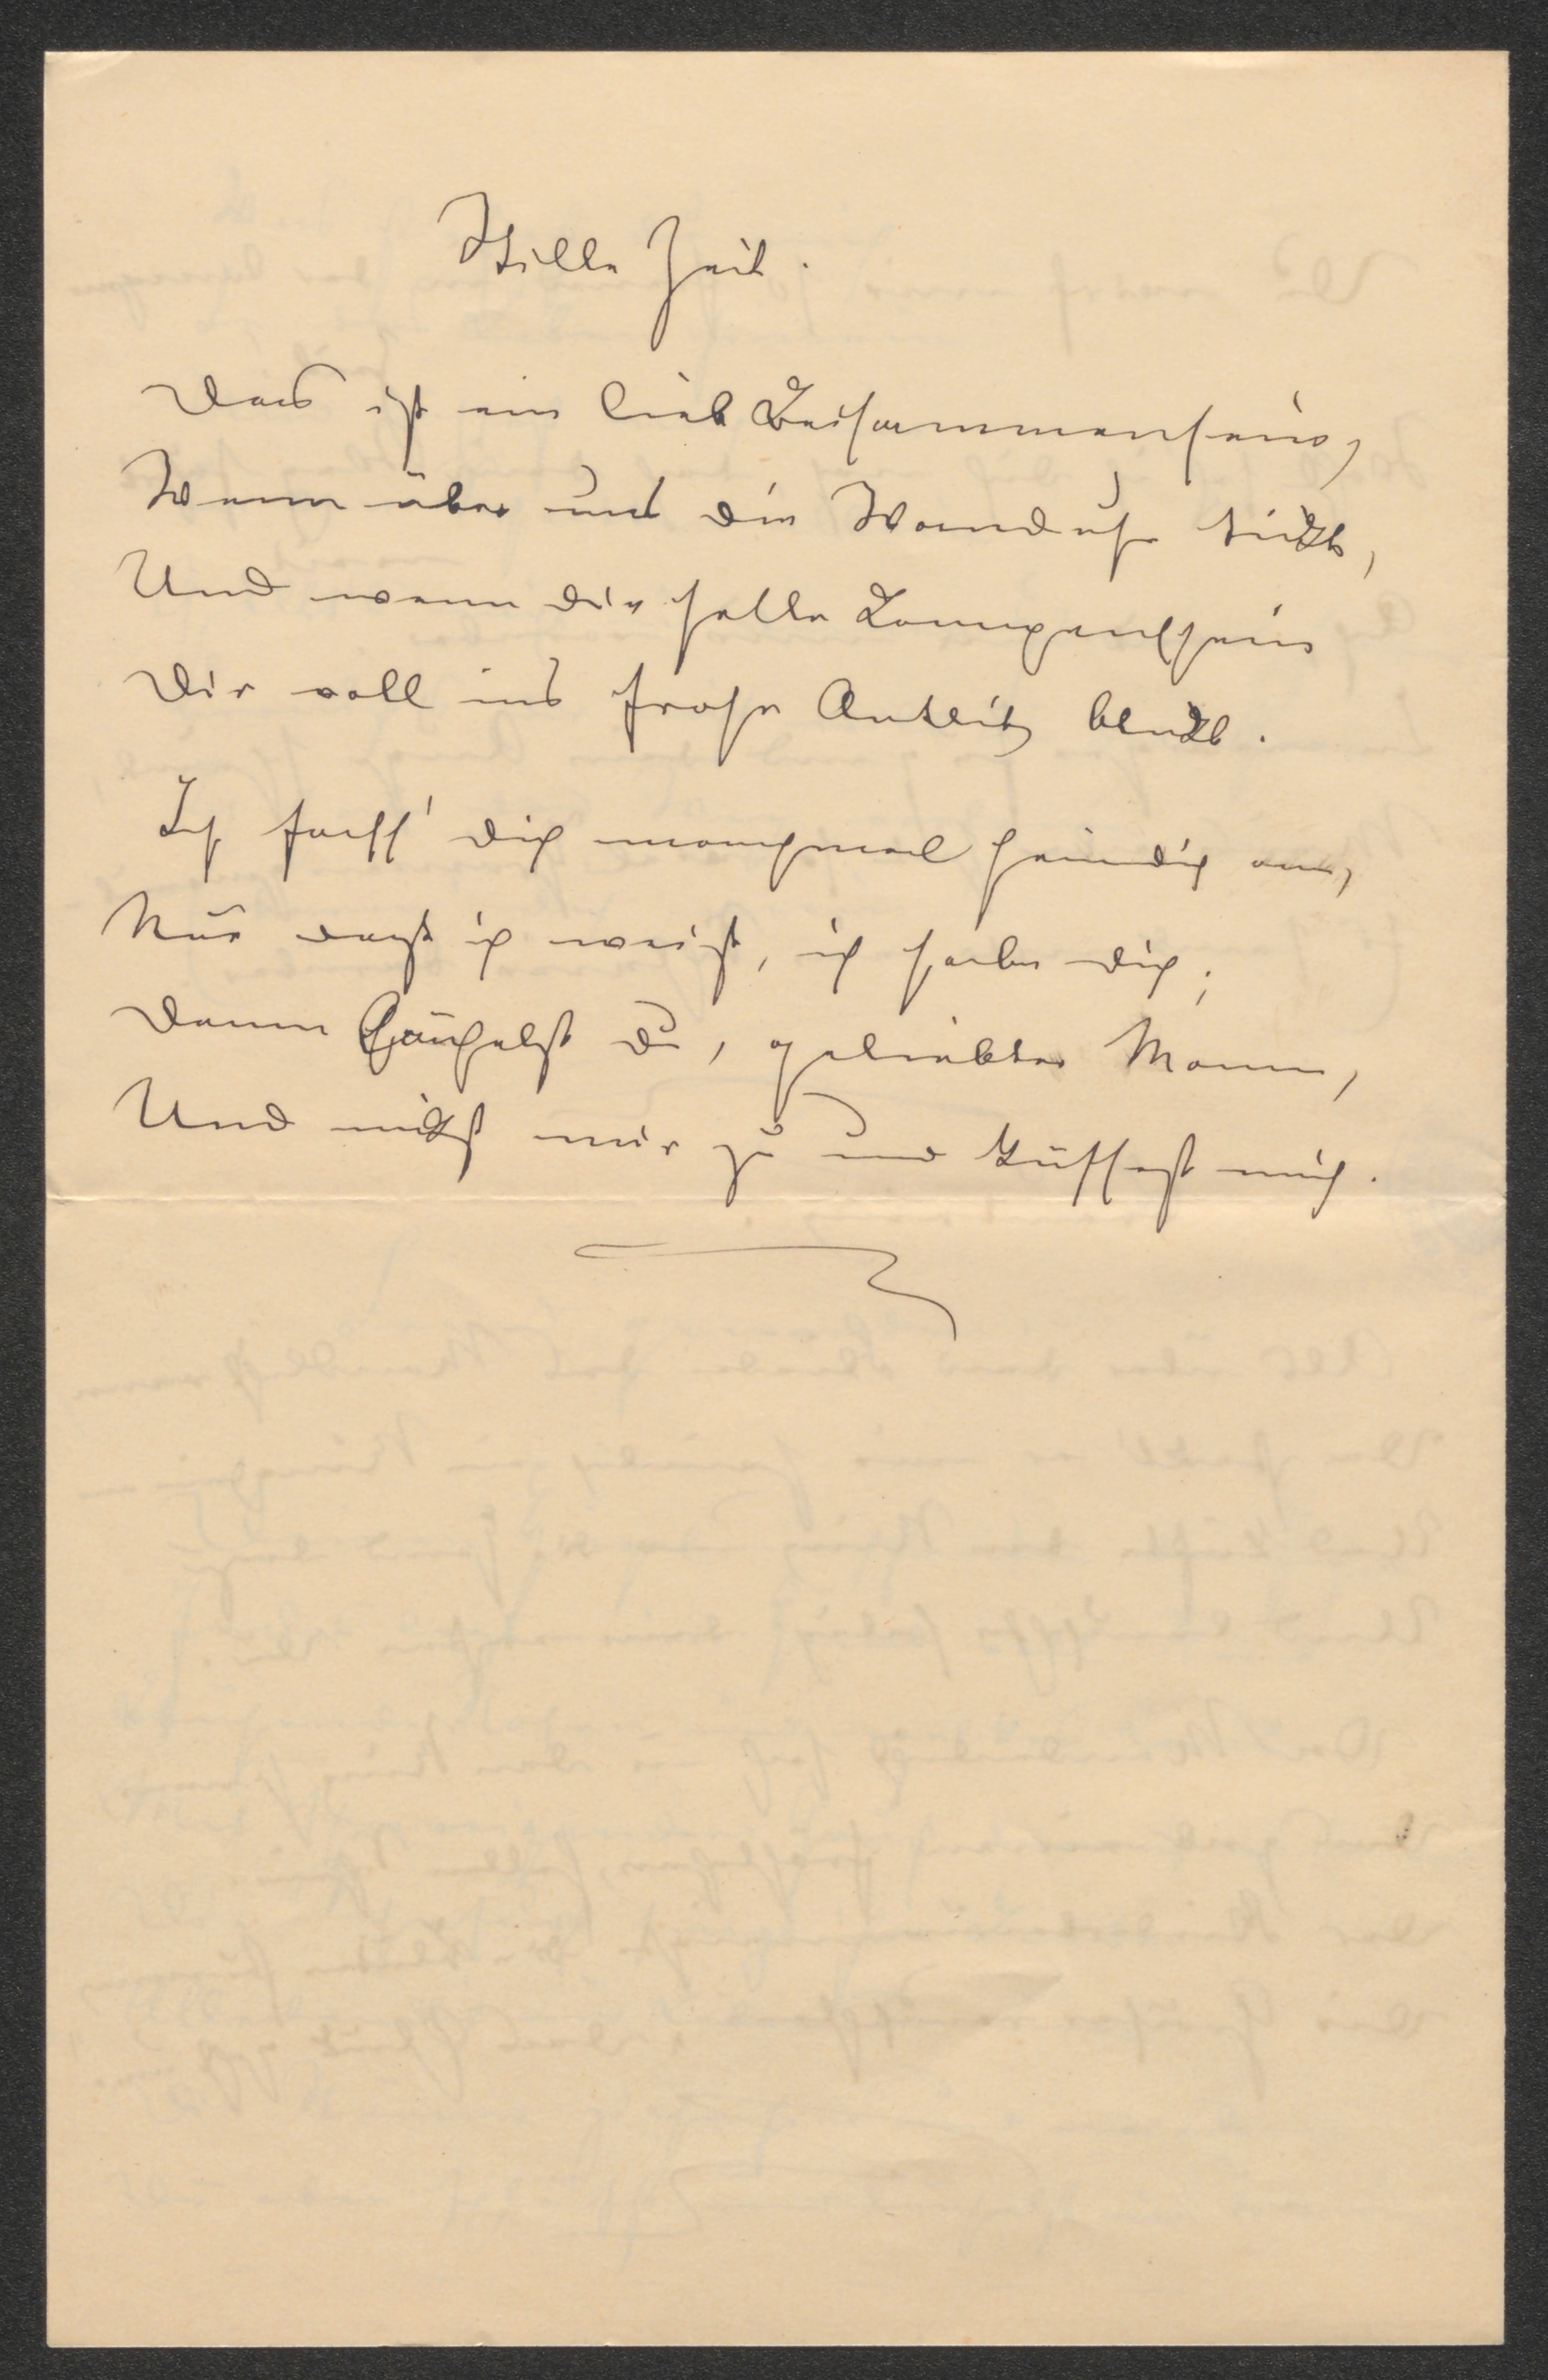 Stille Zeit.
Das ist ein lieb Beisammensein,
Wenn über uns die Wanduhr tickt,
Und wenn der helle Lampenschein
Dir voll ins frohe Antlitz blickt.
Ich fass' dich manchmal heimlich an,
Nur dass ich weiss, ich habe dich;
Dann lächelst du, geliebter Mann,
Und nickst mir zu und küssest mich.